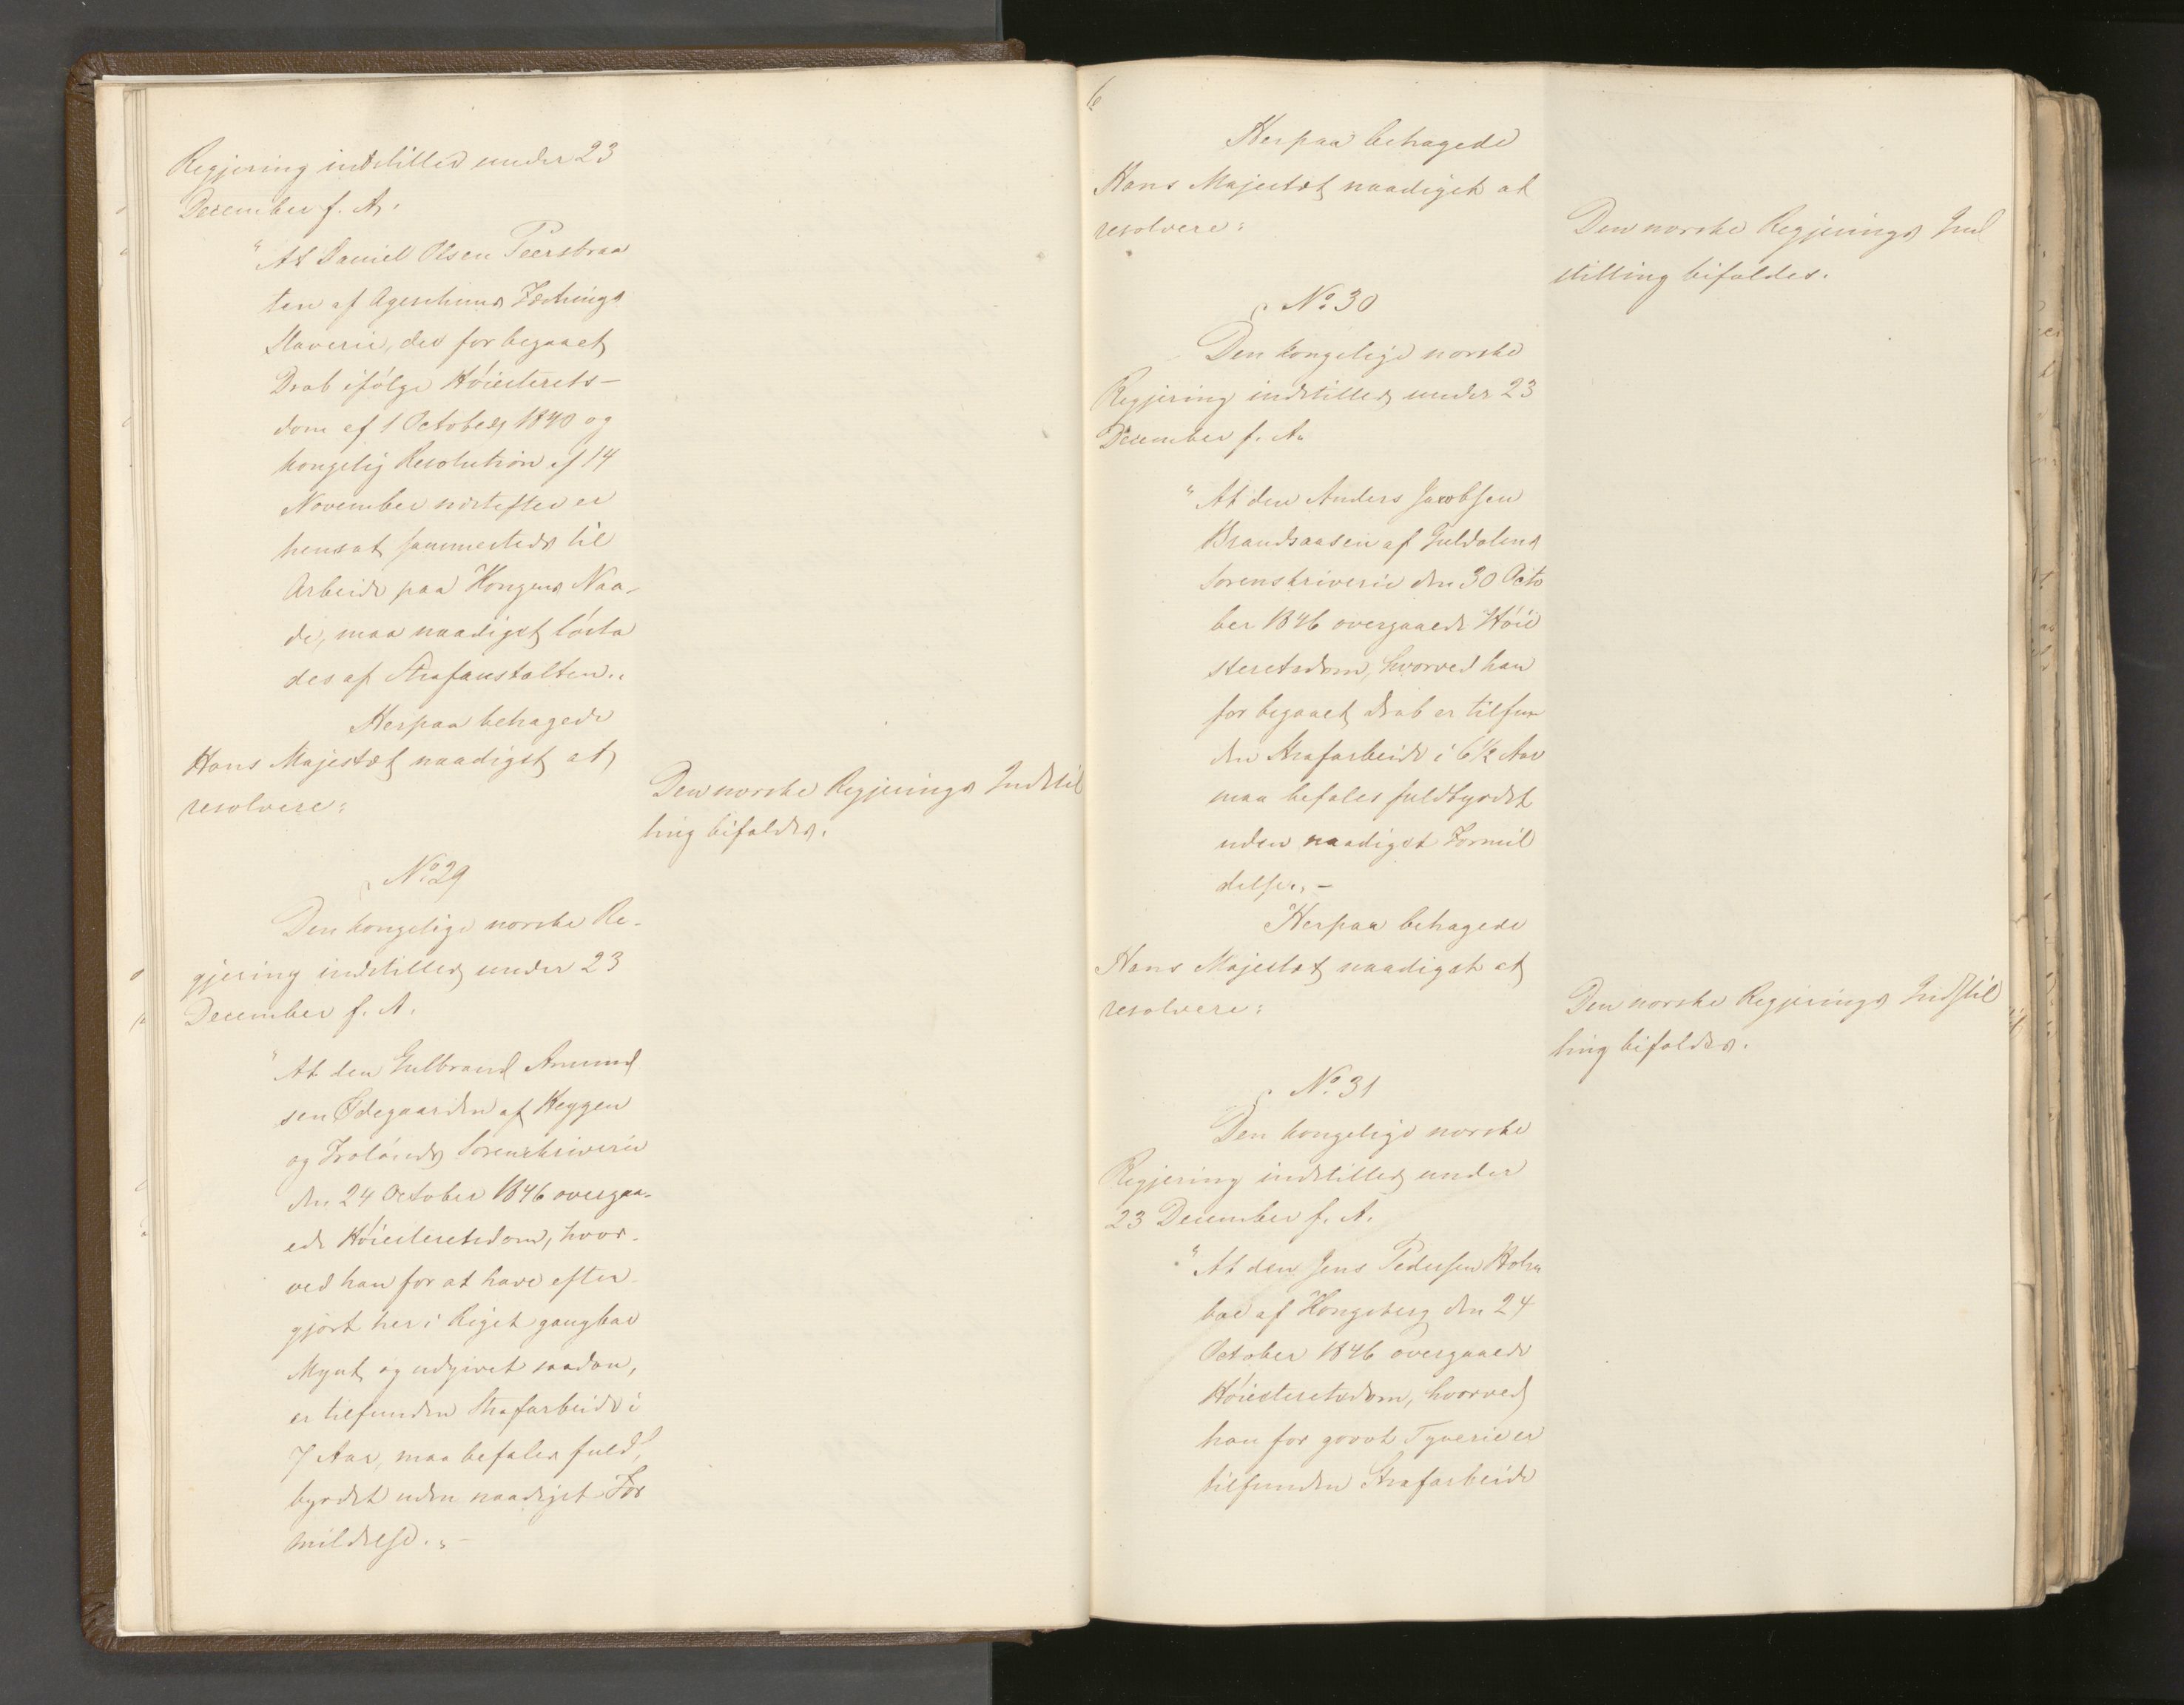 Regjering indstilled under 23
December f. A.
"At Daniel Olsen Peersbraa
ten af Agershuus Fæstnings
Slaverie, der for begaaet
Drab ifølge Høiesterets-
dom af 1 October 1840 og
kongelig Resolution af 14
November næstefter er
hensat sammesteds til
Arbeide paa Kongens Naa-
de, maa naadigst løsla
des af Strafanstalten."
Herpaa behagede
Hans Majestæt naadigst at
resolvere:
Den norske Regjerings Indstil
ling bifaldes.
No. 29
Den kongelige norske Re-
gjering indstilled under 23
December f. A.
"At den Gulbrand Amund
sen Ødegaarden af
og Sorenskriverie
den 24 October 1846 overgaa-
ede Høiesteretsdom, hvor-
ved han for at have efter-
gjort her i Riget gangbar
Mynt og udgivet saadan,
er tilfunden Strafarbeide i
7 Aar, maa befales fuld-
byrdet uden naadigst For
mildelse." -
6
Herpaa behagede
Hans Majestæt naadigst at
resolvere:
Den norske Regjerings Ind
stilling bifaldes.
No. 30
Den kongelige norske
Regjering indstilled under 23
December f. A.
"At den Anders Jacobsen
Brandsaasen af Guldalens
Sorenskriverie den 30 Octo
ber 1846 overgaaede Høie
steretsdom, hvorved han
for begaaet Drab er tilfun
den Strafarbeide i 6 1/2 Aar
maa befales fuldbyrdet
uden naadigst Formil
delse." -
Herpaa behagede
Hans Majestæt naadigst at
resolvere:
Den norske Regjerings Indstil
ling bifaldes.
No. 31
Den kongelige norske
Regjering indstilled under
23 December f. A.
"At den Jens Pedersen Holm
boe af Kongsberg den 24
October 1846 overgaaede
Høiesteretsdom, hvorved
han for grovt Tyverie er
tilfunden Strafarbeide